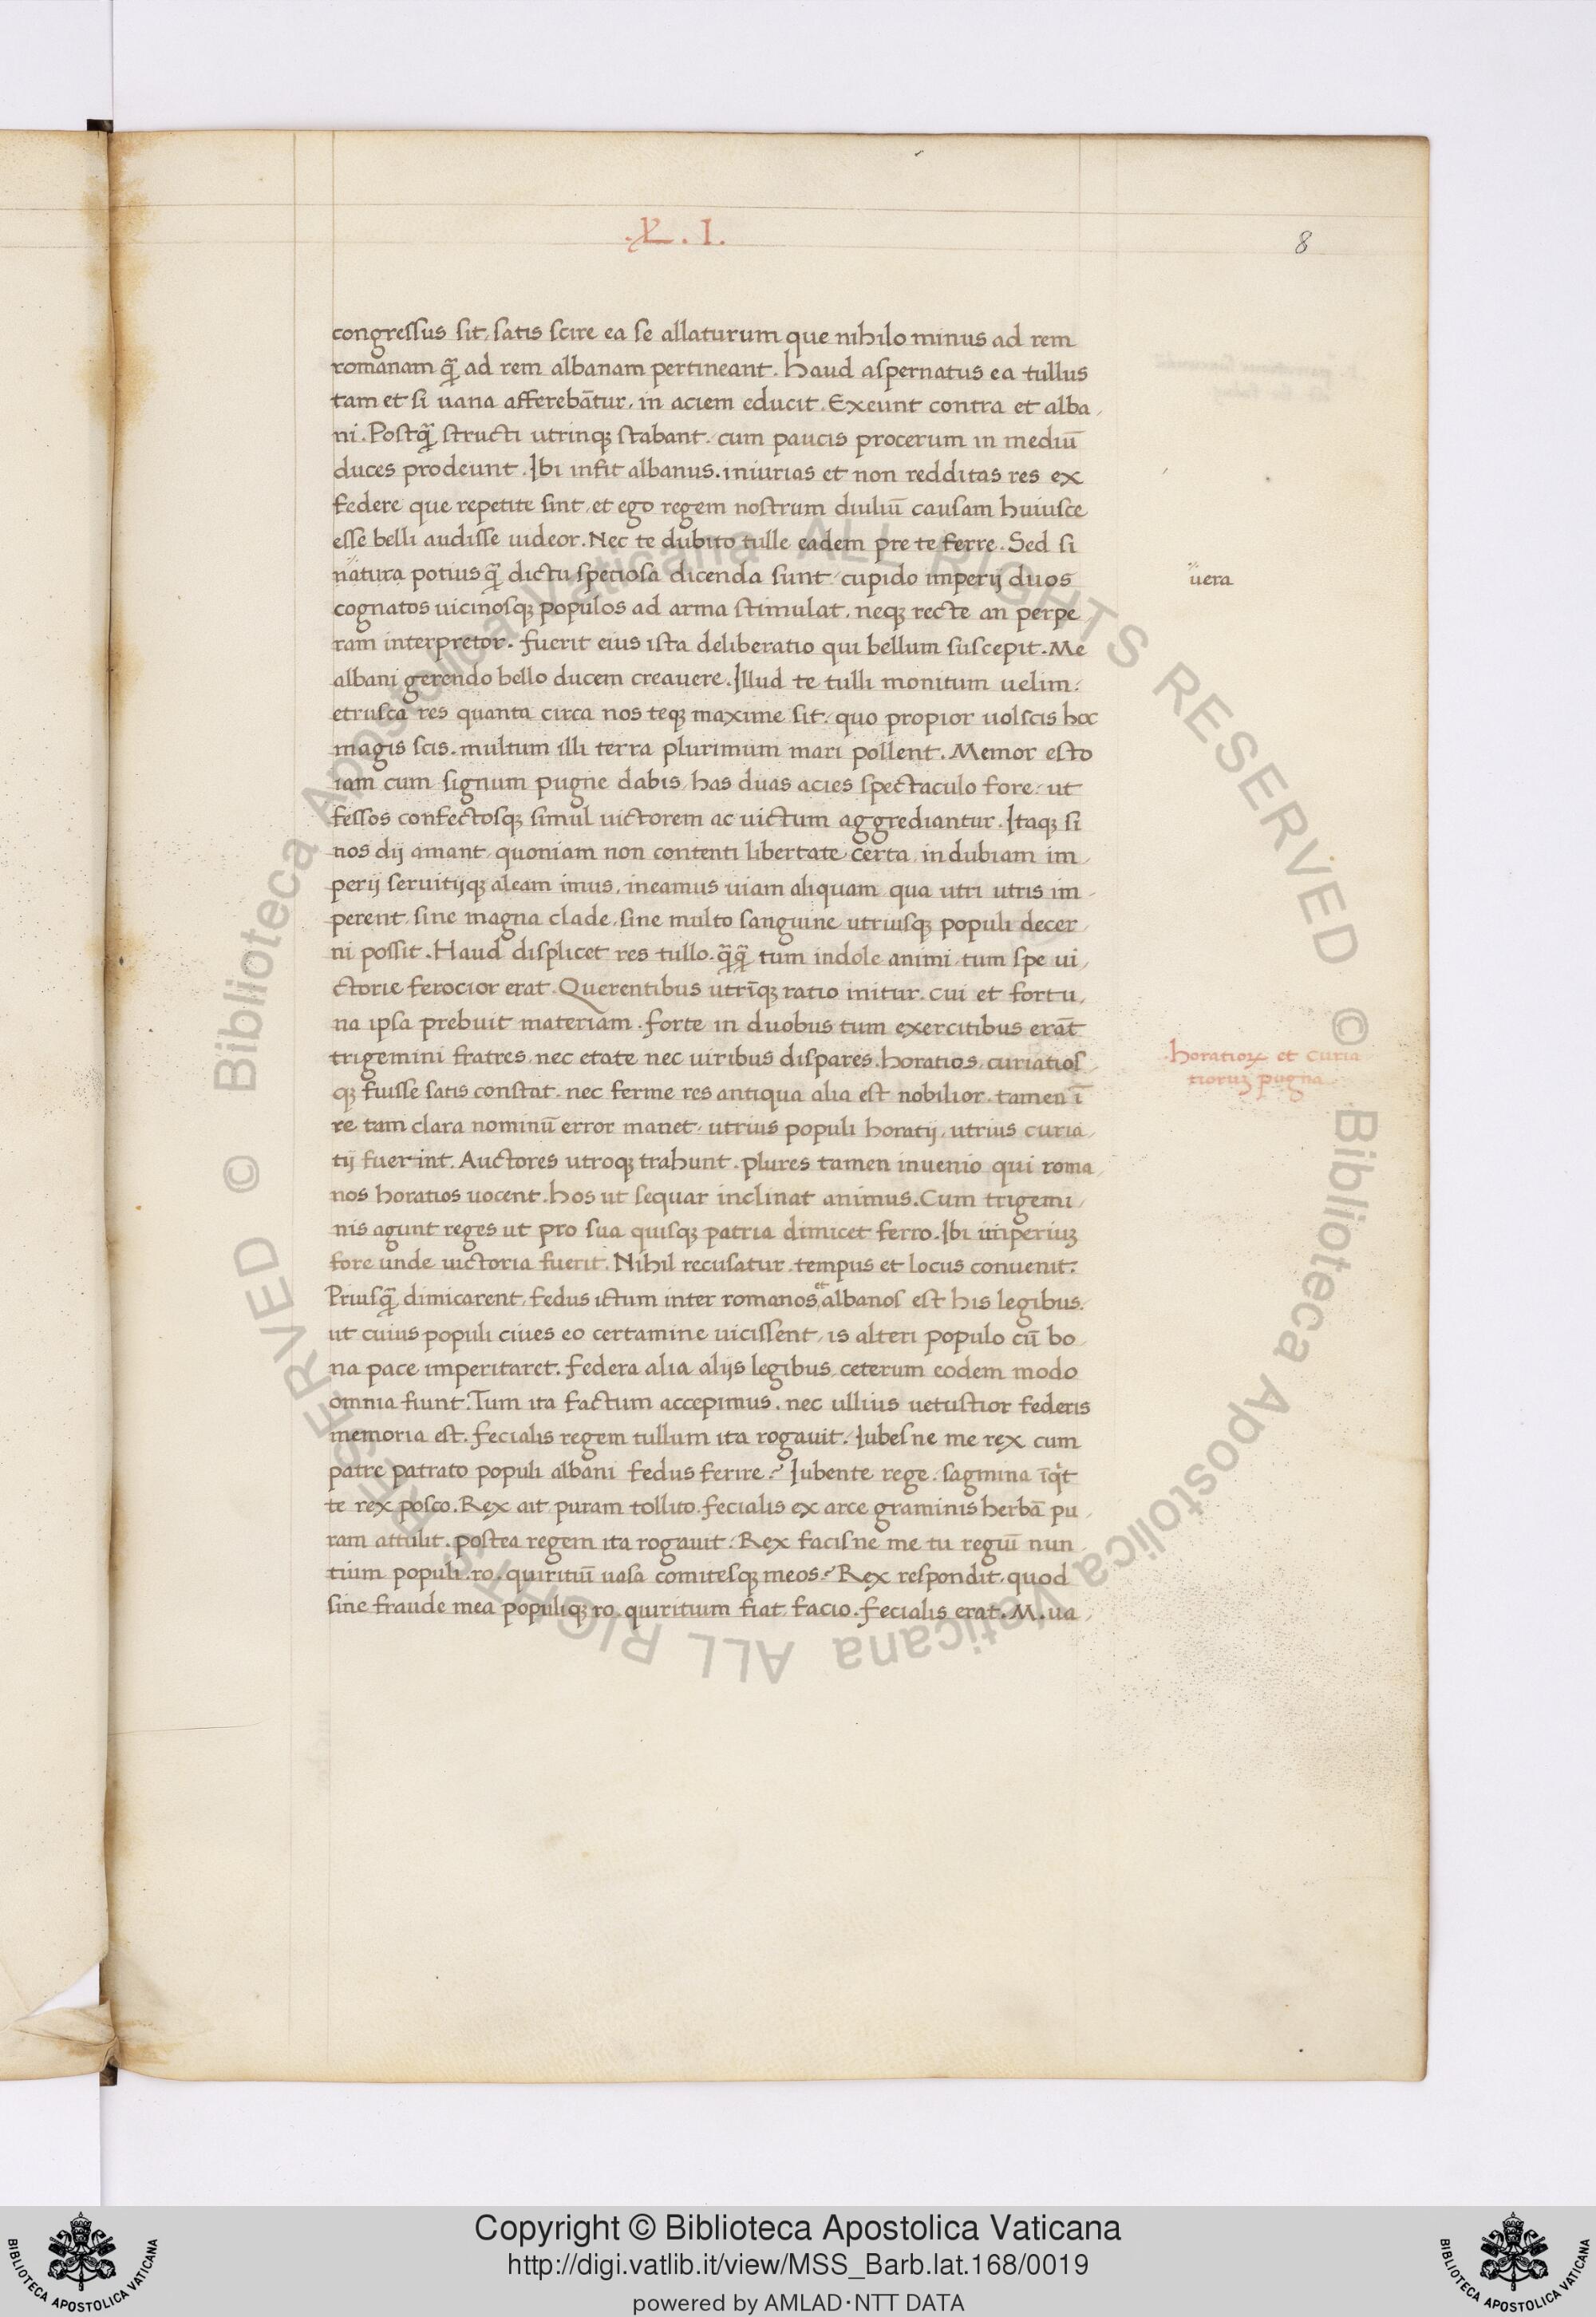 .L. I.
8
congressus sit, satis scire ea se allaturum que nihilo minus ad rem
romanam q̃ ad rem albanam pertineant. haud aspernatus ea tullus
tam et si uana afferebãtur, in aciem educit. Exeunt contra et alba
ni. Postq̃ structi utrinqꝫ stabant, cum paucis procerum in mediũ
duces prodeunt. Ibi infit albanus. iniurias et non redditas res ex
federe que repetite sint, et ego regem nostrum diuliũ causam huiusce
esse belli audisse uideor. Nec te dubito tulle eadem pre te ferre. Sed si
natura potius q̃ dictu speciosa dicenda sunt, cupido imperij duos
uera
cognatos uicinosqꝫ populos ad arma stimulat, neqꝫ recte an perpe
ram interpretor. fuerit eius ista deliberatio qui bellum suscepit. Me
albani gerendo bello ducem creauere. Illud te tulli monitum uelim:
etrusca res quanta circa nos teqꝫ maxime sit, quo propior uolscis hoc
magis scis. multum illi terra plurimum mari pollent. Memor esto
iam cum signum pugne dabis, has duas acies spectaculo fore, ut
fessos confectosqꝫ simul uictorem ac uictum aggrediantur. Itaqꝫ si
nos dij amant, quoniam non contenti libertate certa, in dubiam im
perij seruitijqꝫ aleam imus, ineamus uiam aliquam qua utri utris im
perent, sine magna clade, sine multo sanguine utriusqꝫ populi decer
ni possit. Haud displicet res tullo. q̃q̃ tum indole animi, tum spe ui
ctorie ferocior erat. Querentibus utrĩqꝫ ratio initur. cui et fortu
na ipsa prebuit materiam. forte in duobus tum exercitibus erãt
trigemini fratres, nec etate nec uiribus dispares. horatios, curiatios
horatioꝝ et curia
tioruꝫ pugna
qꝫ fuisse satis constat. nec ferme res antiqua alia est nobilior. tamen ĩ
re tam clara nominũ error manet, utrius populi horatij, utrius curia
tij fuerint. Auctores utroqꝫ trahunt. plures tamen inuenio qui roma
nos horatios uocent. hos ut sequar inclinat animus. Cum trigemi
nis agunt reges ut pro sua quisqꝫ patria dimicet ferro. Ibi imperiuꝫ
fore unde uictoria fuerit. Nihil recusatur. tempus et locus conuenit.
Priusq̃ dimicarent, fedus ictum inter romanos et albanos est his legibus.
ut cuius populi ciues eo certamine uicissent, is alteri populo cũ bo
na pace imperitaret. federa alia alijs legibus, ceterum eodem modo
omnia fiunt. Tum ita factum accepimus, nec ullius uetustior federis
memoria est. fecialis regem tullum ita rogauit. Iubes ne me rex cum
patre patrato populi albani fedus ferire? Iubente rege. sagmina ĩqͥt
te rex posco. Rex ait puram tollito. fecialis ex arce graminis herbã pu
ram attulit. postea regem ita rogauit. Rex facis ne me tu regiũ nun
tium populi .ro. quiritiũ uasa comitesqꝫ meos? Rex respondit, quod
sine fraude mea populiqꝫ ro. quiritium fiat, facio. fecialis erat. M. ua
© Biblioteca Apostolica Vaticana ALL RIGHTS RESERVED © Biblioteca Apostolica Vaticana ALL RIGHTS RESERVED
Copyright © Biblioteca Apostolica Vaticana
http://digi.vatlib.it/view/MSS_Barb.lat.168/0019
powered by AMLAD·NTT DATA
BIBLIOTECA APOSTOLICA VATICANA
BIBLIOTECA APOSTOLICA VATICANA